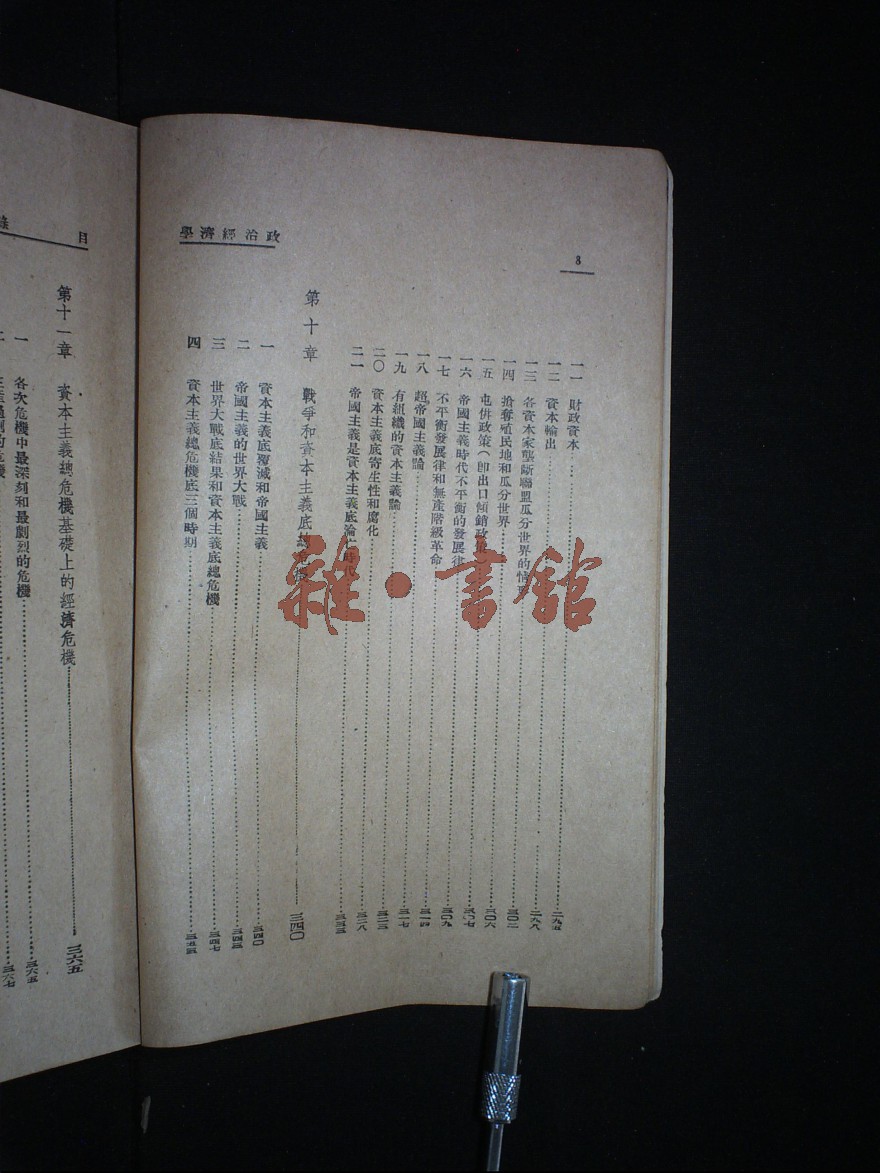 政治經濟學
8
一一 財政資本 二九五
一二 資本輸出 二九八
一三 各資本家壟斷聯盟瓜分世界的情
一四 搶奪殖民地和瓜分世界 三〇二
一五 屯併政策(即出口傾銷政策 三〇六
一六 帝國主義時代不平衡的發展律 三〇七
一七 不平衡發展律和無產階級革命 三〇九
一八 超帝國主義論 三一四
一九 有組織的資本主義論 三一七
二〇 資本主義底寄生性和腐化 三二三
二一 帝國主義是資本主義底淪亡時代 三三三
第十章 戰爭和資本主義底總危機 三四〇
一 資本主義底覆滅和帝國主義 三四〇
二 帝國主義的世界大戰 三四三
三 世界大戰底結果和資本主義底總危機 三四七
四 資本主義總危機底三個時期 三五三
目
第十一章 資本主義總危機基礎上的經濟危機 三六五
一 各次危機中最深刻和最劇烈的危機 三六五
三六七
雜·書館